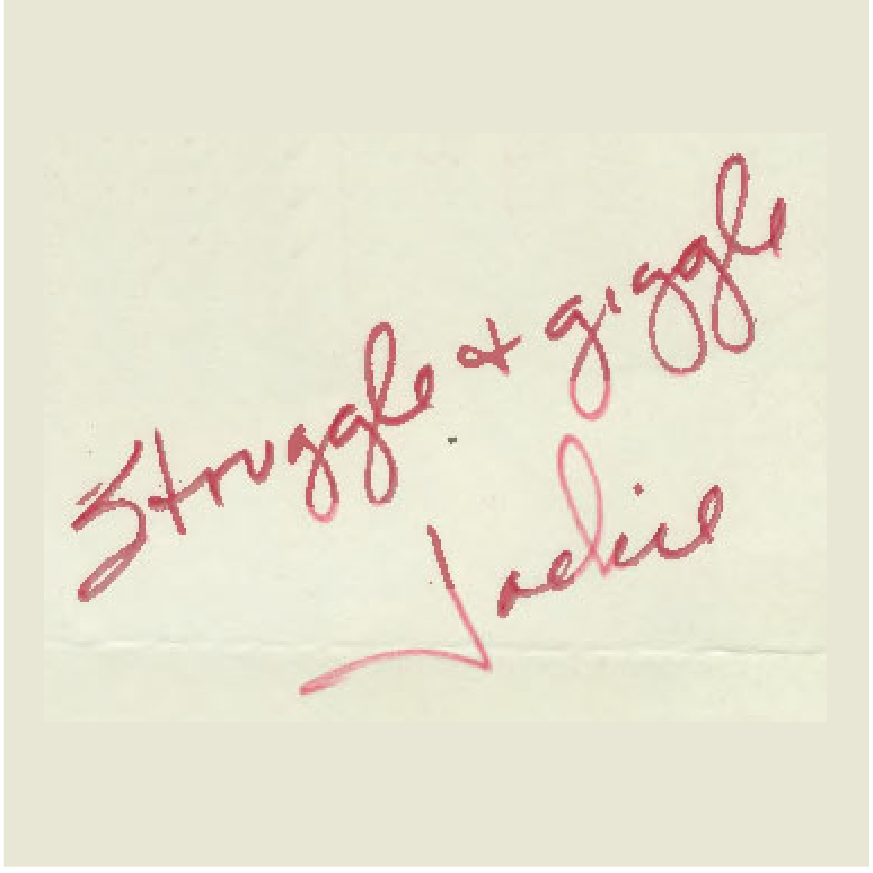 Struggle + giggle
Jackie